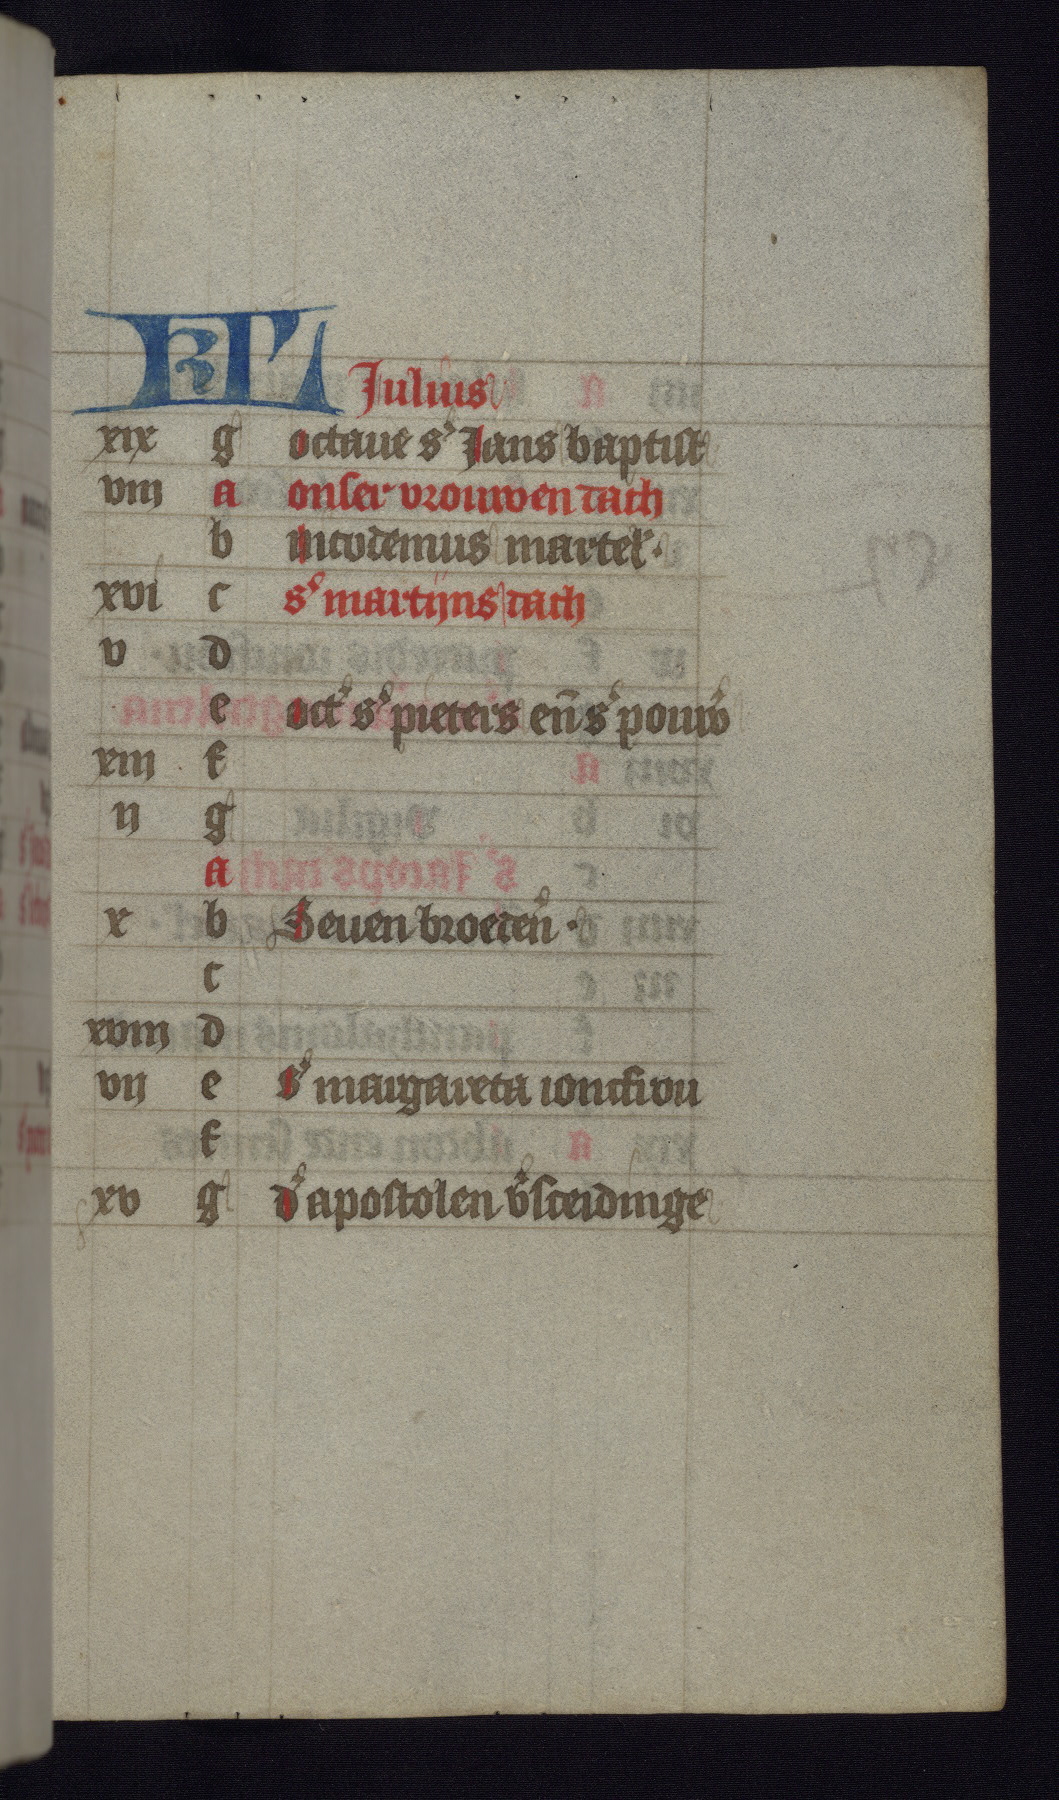 KL Julius
xix g octaue s' Jans baptist
viii a onser vrouwen dach
b nicodemus marteľ.
xvi c s' martijns dach
v d
e oct' s' pieters en̄ s' pouw̄
xiii f
ii g
a
x b Seuen broeden̄.
c
xviii d
vii e S' margareta ioncfrou
f
xv g d' apostolen v̄sceidinge